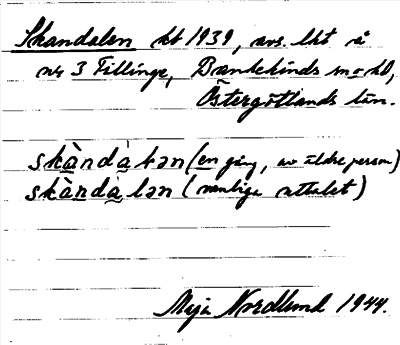 Skandalen kt 1939, avs. lht å
nr 3 Tillinge, Bankekinds sn o hd,
Östergötlands län.
skàndàlən (en gång, av äldre person)
skàndàlən (vanliga uttalet)
Maja Nordlund 1944.